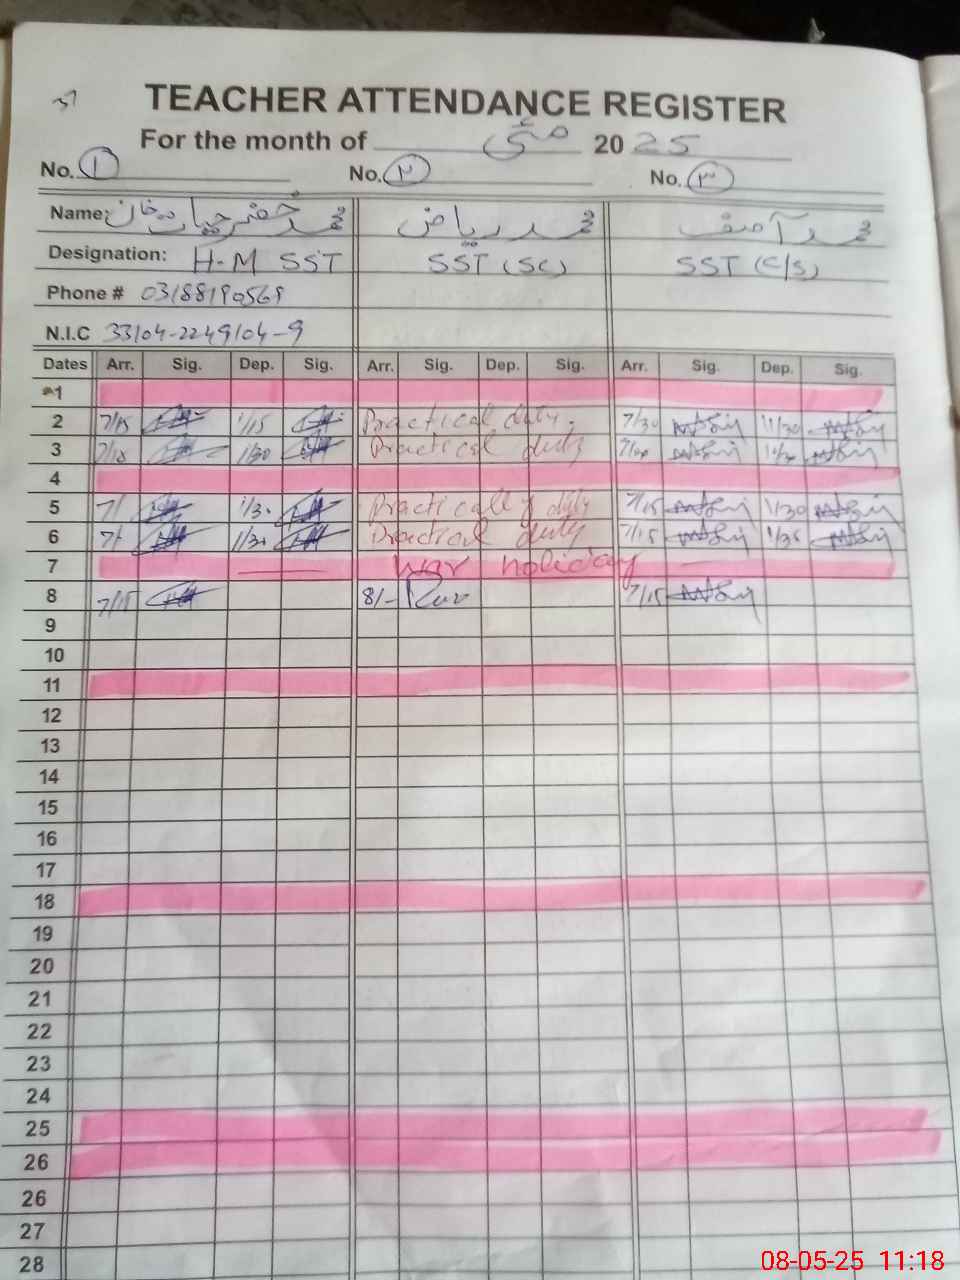 TEACHER ATTENDANCE REGISTER
For the month of مئی 2025
No. ۱ No. ۲ No. ۳
Name: محمد خضر حیات خان محمد ریاض محمد آصف
Designation: H-M SST SST (SC) SST (C/S)
Phone # 03188190569
N.I.C 33104-2249104-9
Dates Arr. Sig. Dep. Sig. Arr. Sig. Dep. Sig. Arr. Sig. Dep. Sig.
1
2 7/15 1/15 Practical duty. 7/30 11/30
3 1/30 Practical duty
4
5 7/ 1/30 Practical duty 7/15 1/30
6 7/ 1/30 Practical duty 7/15 1/35
7 War holiday
8 7/15 8/- 7/15
9
10
11
12
13
14
15
16
17
18
19
20
21
22
23
24
25
26
26
27
28
08-05-25 11:18